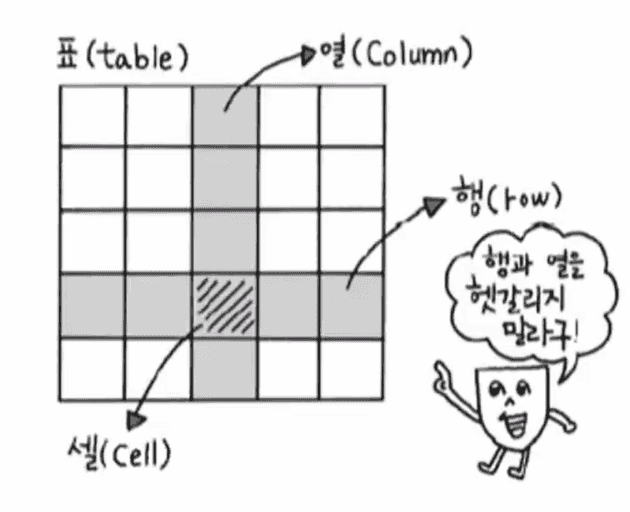 표(table)
열(Column)
행(row)
행과 열을
헷갈리지
말라구!
셀(Cell)